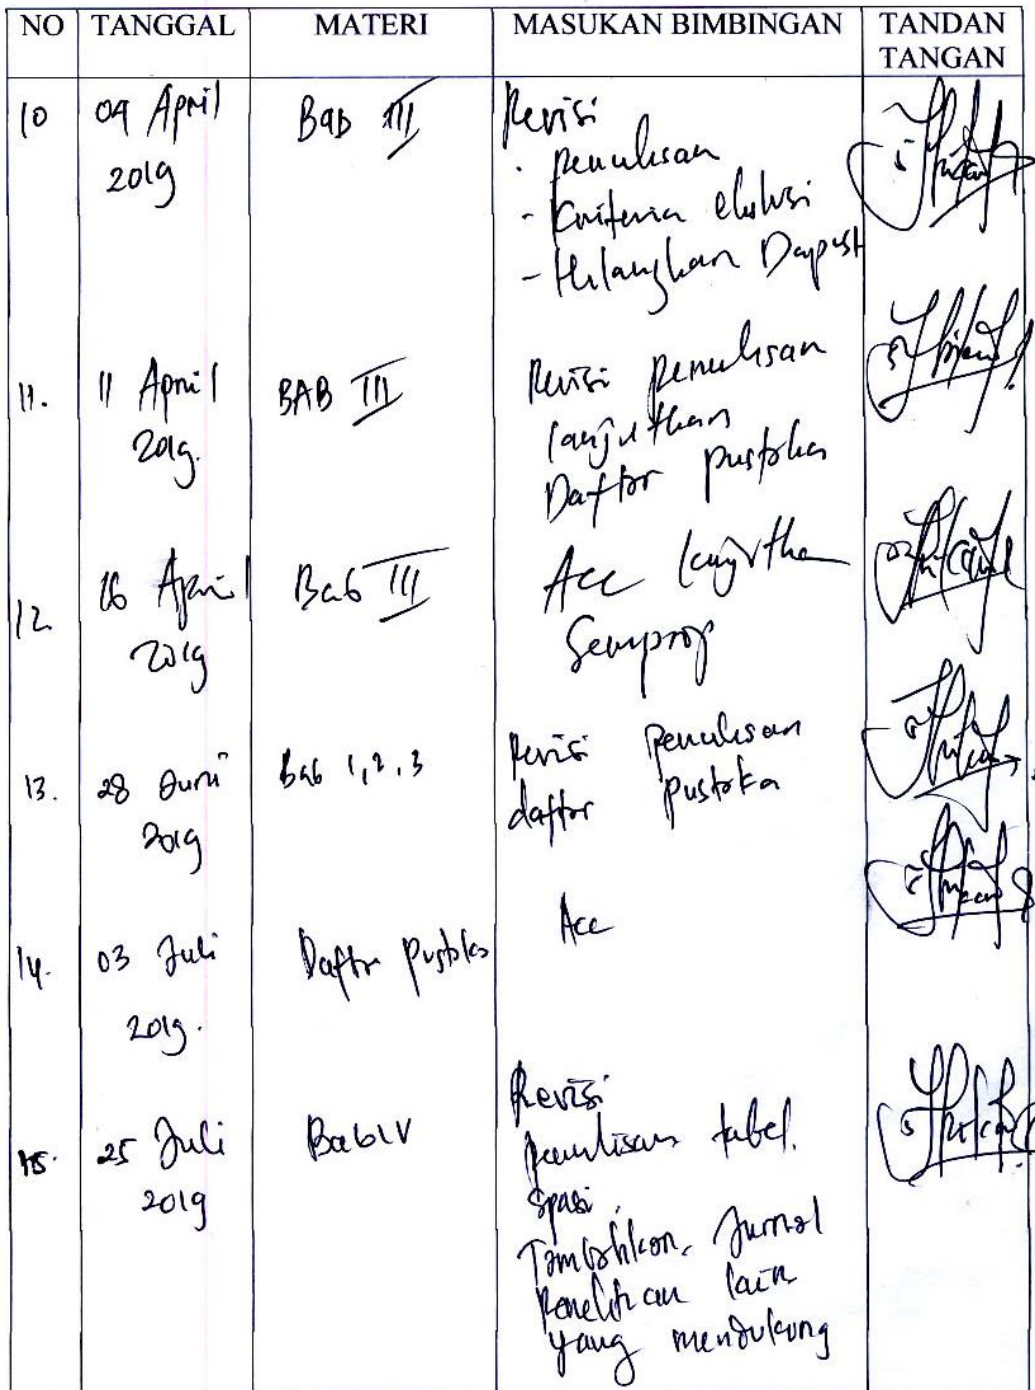 NO TANGGAL MATERI MASUKAN BIMBINGAN TANDAN
TANGAN
10 04 April Bab III Revisi
2019 - penulisan
- Kriteria eklusi
- Hilangkan Dapust
11. 11 April BAB III Revisi penulisan
2019. lanjutkan
Daftar pustaka
12. 16 April Bab III Acc lanjutkan
2019 Semprop
13. 28 Juni Bab 1, 2, 3 Revisi penulisan
2019 daftar pustaka
14. 03 Juli Daftar pustaka Acc
2019.
15. 25 Juli Bab IV Revisi
2019 penulisan tabel.
spasi,
Tambahkan. Jurnal
Penelitian lain
yang mendukung